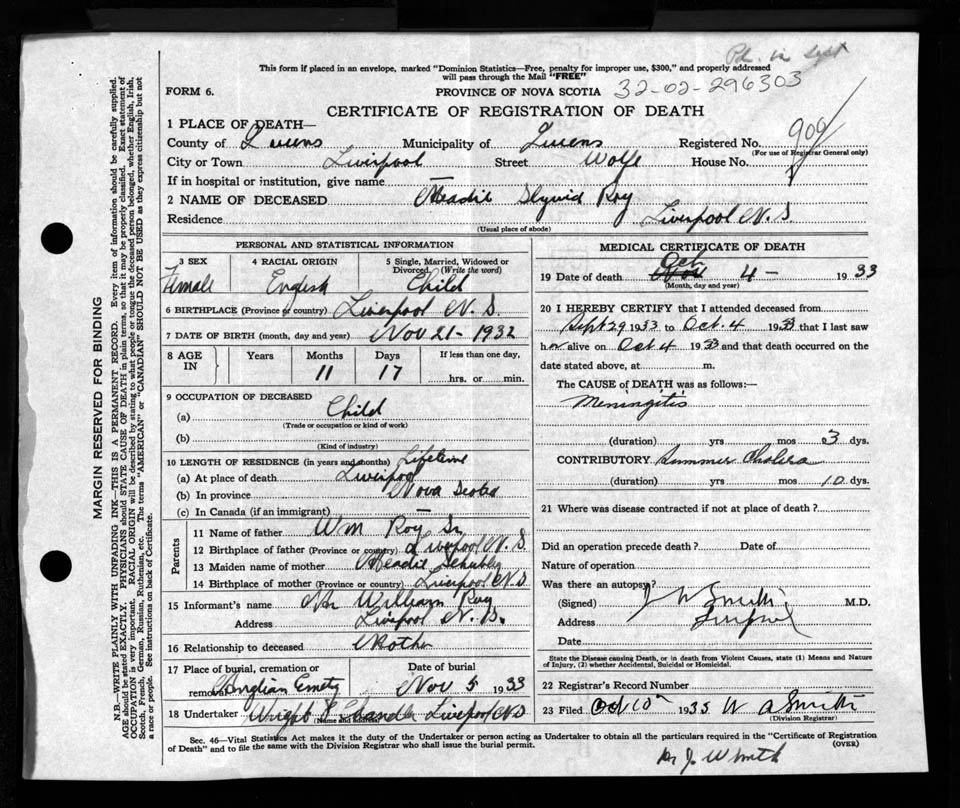 Pd. in Sept
This form if placed in an envelope, marked "Dominion Statistics—Free, penalty for improper use, $300," and properly addressed
will pass through the Mail "FREE"
FORM 6.
PROVINCE OF NOVA SCOTIA 32-02-296303
CERTIFICATE OF REGISTRATION OF DEATH
1 PLACE OF DEATH—
County of Queens Municipality of Queens Registered No. 909
(For use of Registrar General only)
City or Town Liverpool Street Wolfe House No.
If in hospital or institution, give name —
2 NAME OF DECEASED Roy
Residence Liverpool N.S
(Usual place of abode)
PERSONAL AND STATISTICAL INFORMATION
3 SEX 4 RACIAL ORIGIN 5 Single, Married, Widowed or
Divorced, (Write the word)
Female English Child
6 BIRTHPLACE (Province or country) Liverpool N.S.
7 DATE OF BIRTH (month, day and year) Nov 21-1932
8 AGE IN Years Months Days If less than one day,
11 17 hrs. or min.
9 OCCUPATION OF DECEASED
(a) Child
(Trade or occupation or kind of work)
(b)
(Kind of industry)
10 LENGTH OF RESIDENCE (in years and months) Lifetime
(a) At place of death Liverpool
(b) In province Nova Scotia
(c) In Canada (if an immigrant) —
Parents
11 Name of father Wm Roy Sr
12 Birthplace of father (Province or country) Liverpool N.S
13 Maiden name of mother
14 Birthplace of mother (Province or country) Liverpool N.S
15 Informant's name William Roy
Address Liverpool N.S.
16 Relationship to deceased Mother
17 Place of burial, cremation or Date of burial
removal Nov 5 1933
18 Undertaker Wright Chandler Liverpool N.S
(Name and address)
MEDICAL CERTIFICATE OF DEATH
19 Date of death Oct 4- 1933
(Month, day and year)
20 I HEREBY CERTIFY that I attended deceased from
Sept 29 1933 to Oct. 4 1933 that I last saw
her alive on Oct 4 1933 and that death occurred on the
date stated above, at m.
The CAUSE of DEATH was as follows:—
Meningitis
(duration) yrs mos 3 dys.
CONTRIBUTORY Summer Cholera
(duration) yrs mos 10 dys.
21 Where was disease contracted if not at place of death?
Did an operation precede death? Date of
Nature of operation
Was there an autopsy?
(Signed) J W Smith M.D.
Address Liverpool
Date
State the Disease causing Death, or in death from Violent Causes, state (1) Means and Nature
of Injury, (2) whether Accidental, Suicidal or Homicidal.
22 Registrar's Record Number
23 Filed Oct 10 1935 W A Smith
(Division Registrar)
Sec. 46—Vital Statistics Act makes it the duty of the Undertaker or person acting as Undertaker to obtain all the particulars required in the "Certificate of Registration
of Death" and to file the same with the Division Registrar who shall issue the burial permit. (OVER)
Dr J. W Smith
MARGIN RESERVED FOR BINDING
N.B.—WRITE PLAINLY WITH UNFADING INK—THIS IS A PERMANENT RECORD. Every item of information should be carefully supplied.
AGE should be stated EXACTLY. PHYSICIANS should STATE CAUSE OF DEATH in plain terms, so that it may be properly classified. Exact statement of
OCCUPATION is very important. RACIAL ORIGIN will be described by stating to what people or tongue the deceased person belonged, whether English, Irish,
Scotch, French, German, Russian, Ruthenian, etc. The terms "AMERICAN" or "CANADIAN" SHOULD NOT BE USED as they express citizenship but not
a race or people. See instructions on back of Certificate.